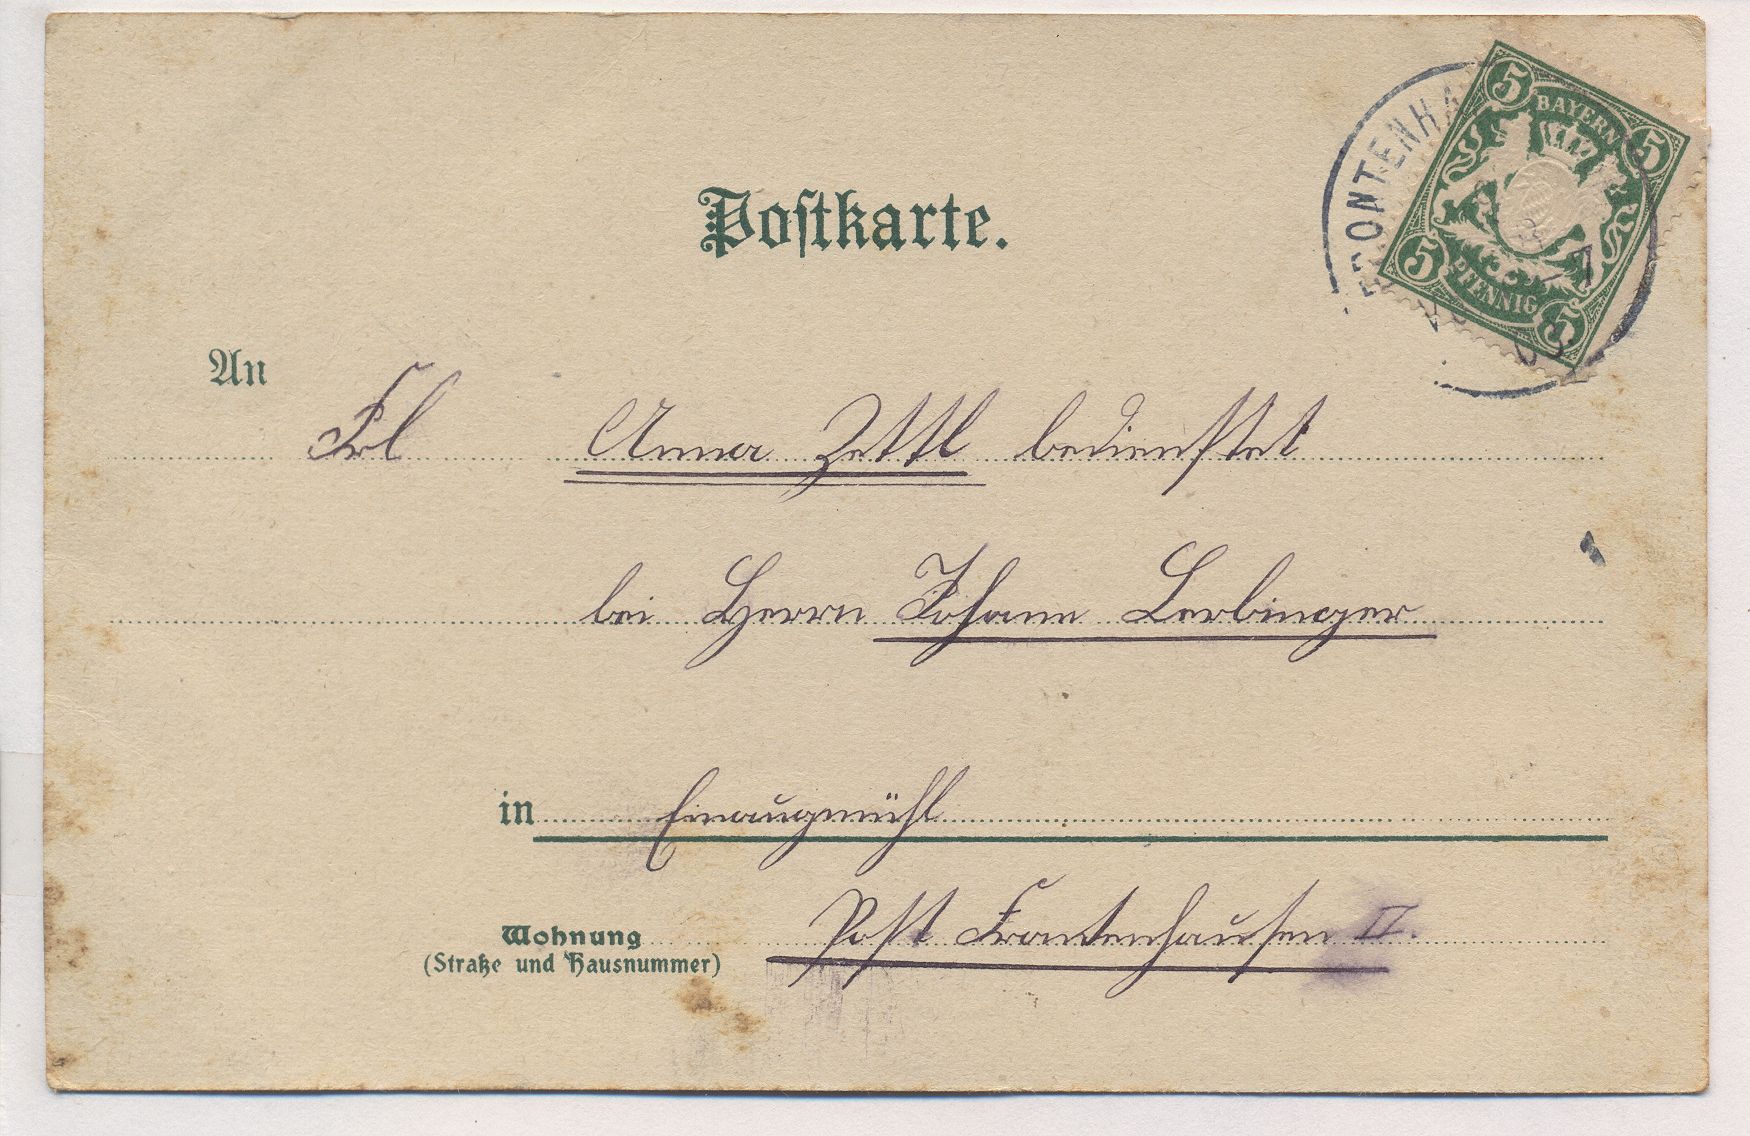 FRONTENHA
5 BAYERN 5
5 PFENNIG 5
Postkarte.
An
Frl Anna Zettl bedienstet
bei Herrn Johann Lerbinger
in Einaugmühl
Post Frontenhausen II.
Wohnung
(Straße und Hausnummer)